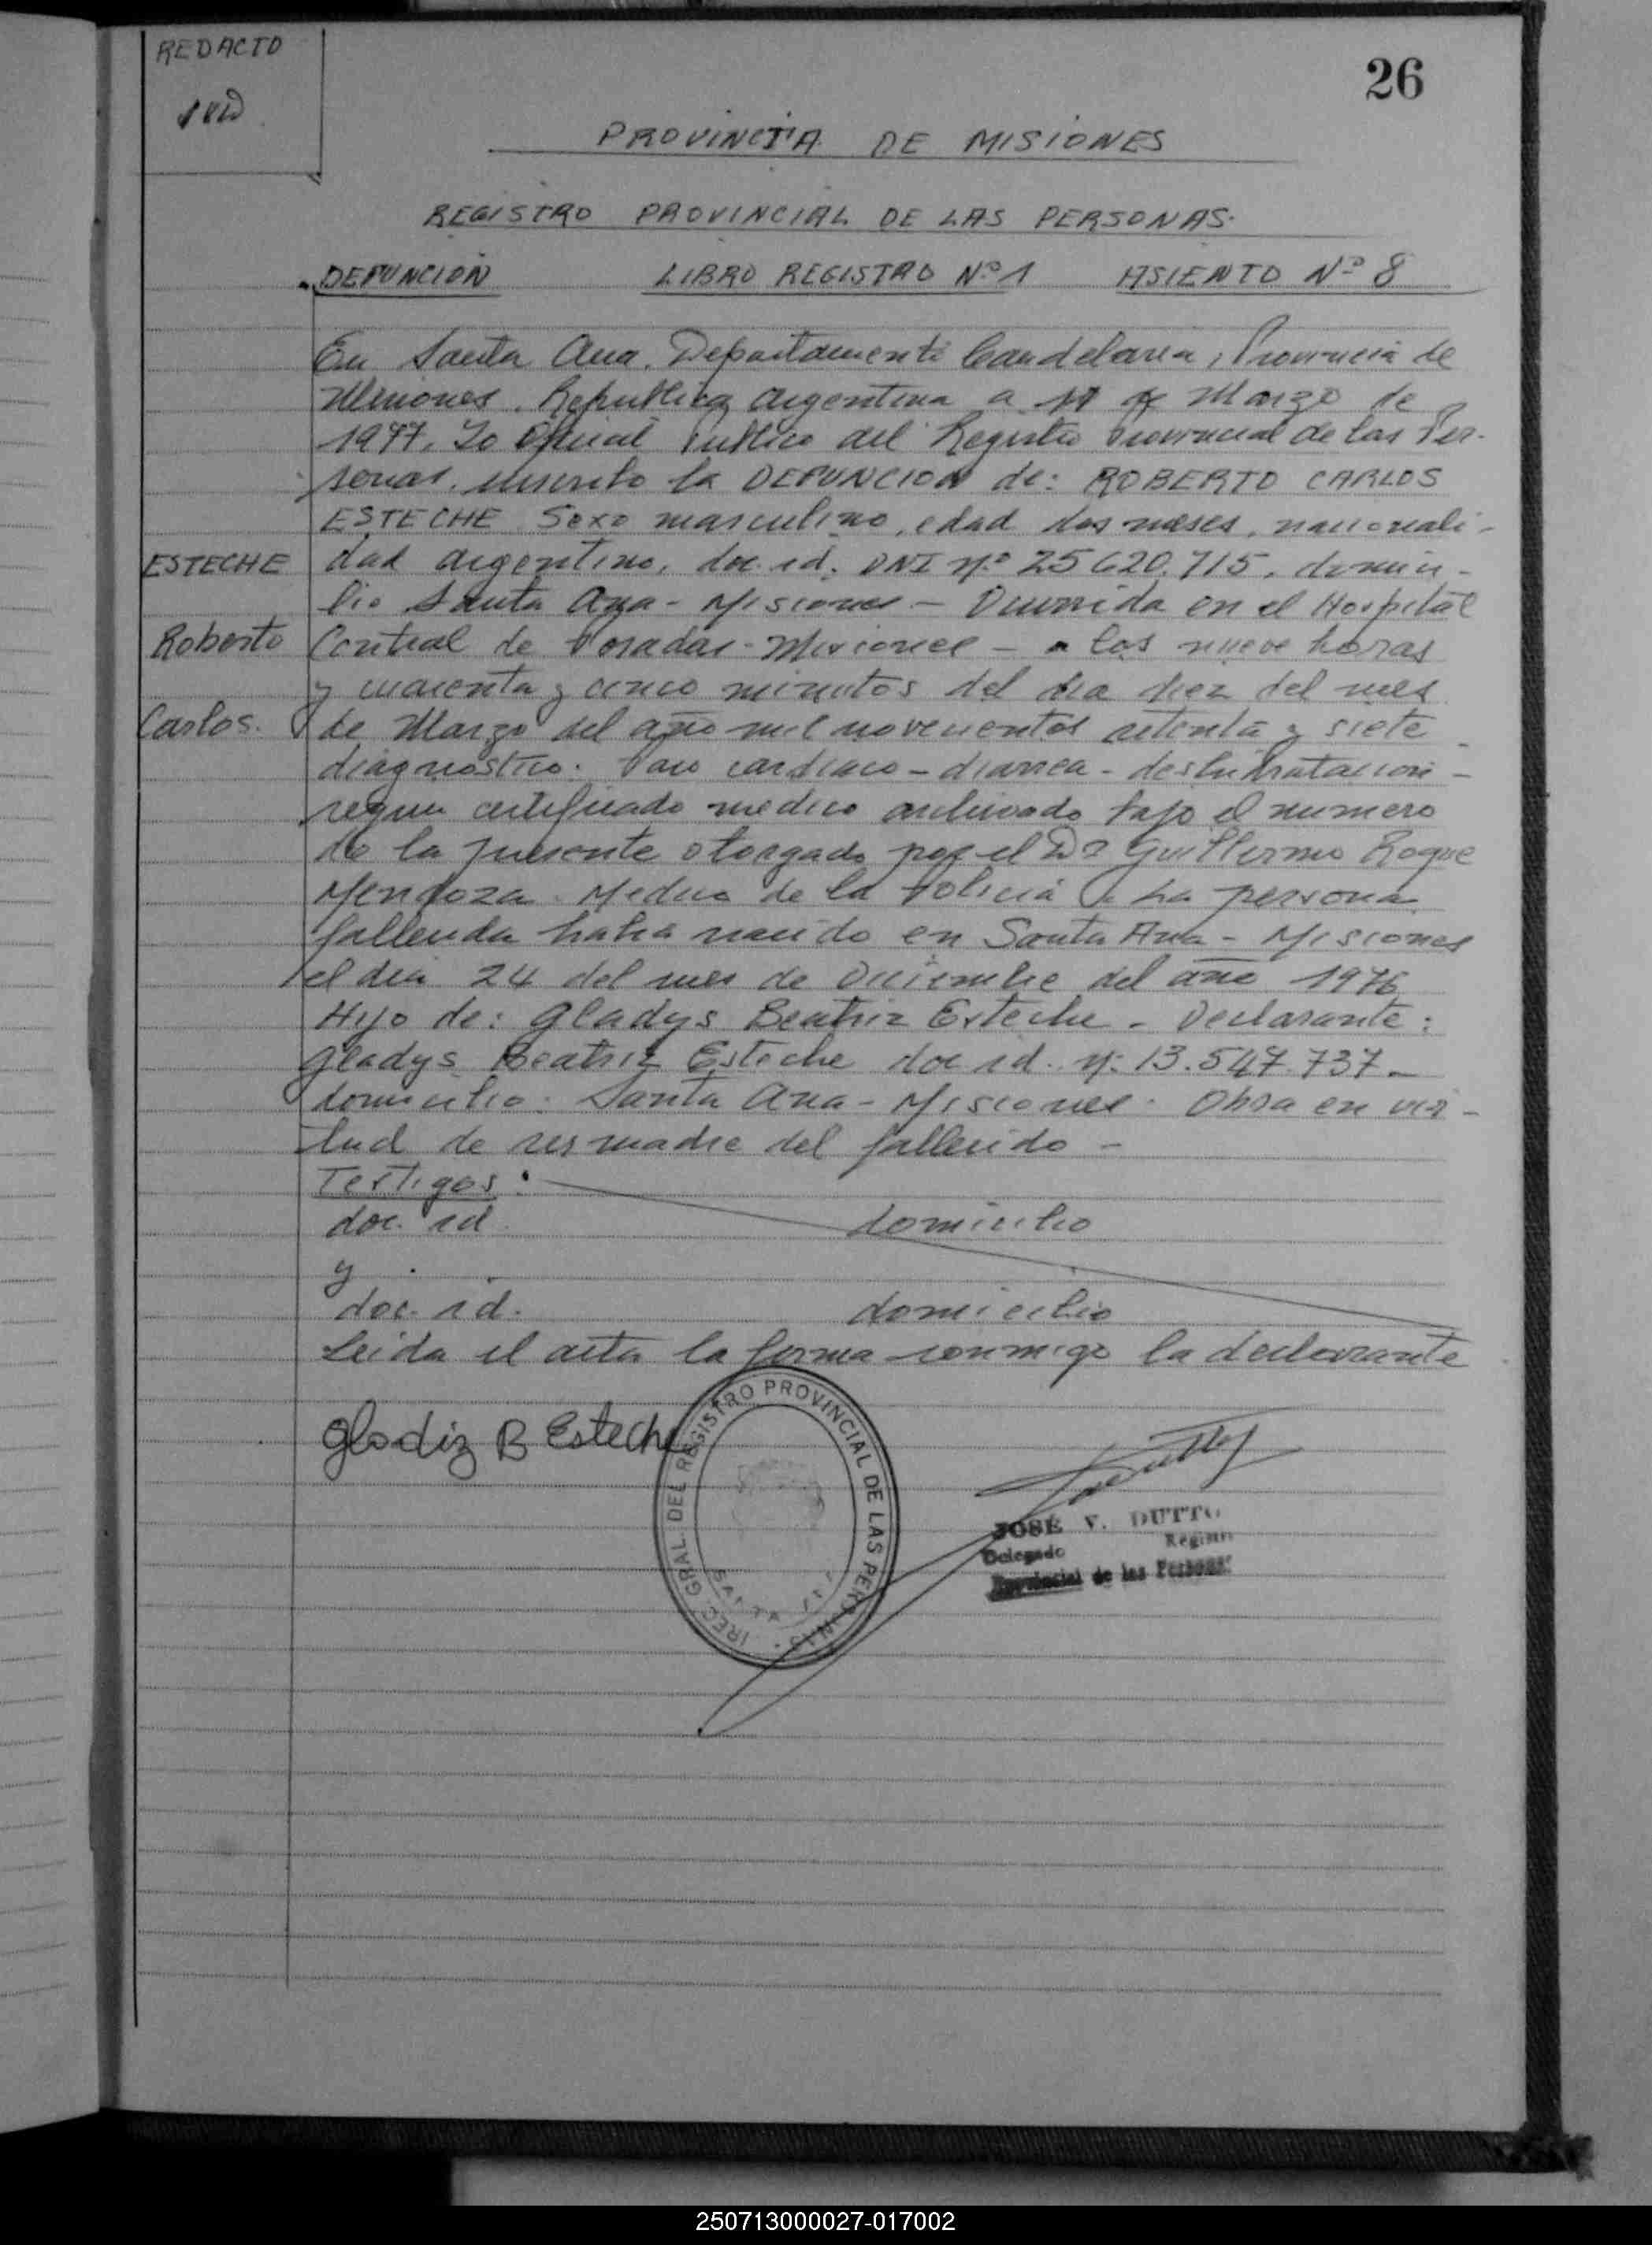 REDACTO
26
PROVINCIA DE MISIONES
REGISTRO PROVINCIAL DE LAS PERSONAS.
DEFUNCION LIBRO REGISTRO Nº 1 ASIENTO Nº 8
En Santa Ana. Departamento Candelaria, Provincia de
Misiones. Republica Argentina a de Marzo de
1977. Yo Oficial Publico del Registro Provincial de las Per-
sonas, inscribo la DEFUNCION de: ROBERTO CARLOS
ESTECHE Sexo masculino, edad dos meses, nacionali-
ESTECHE dad argentino, doc. id. DNI Nº 25620.715, domici-
lio Santa Ana - Misiones - Ocurrida en el Hospital
Roberto Central de Posadas - Misiones - a las nueve horas
y cuarenta y cinco minutos del dia diez del mes
Carlos. de Marzo del año mil novecientos setenta y siete
diagnostico. Paro cardiaco - diarrea - deshidratacion -
segun certificado medico archivado bajo el numero
de la presente otorgado por el Dr Guillermo Roque
Mendoza. Medico de la Policia La persona
fallecida habia nacido en Santa Ana - Misiones
el dia 24 del mes de Diciembre del año 1976
Hijo de: Gladys Beatriz Esteche - Declarante:
Gladys Beatriz Esteche doc id. Nº 13.547.737 -
domicilio. Santa Ana - Misiones. Obra en vir-
tud de ser madre del fallecido -
Testigos:
doc. id. domicilio
y
doc. id. domicilio
Leida el acta la firma conmigo la declarante
Gladiz B Esteche
IREC. GRAL. DEL REGISTRO PROVINCIAL DE LAS PERSONAS
SANTA
JOSE V. DUTTO
Delegado Registro
Provincial de las Personas
250713000027-017002